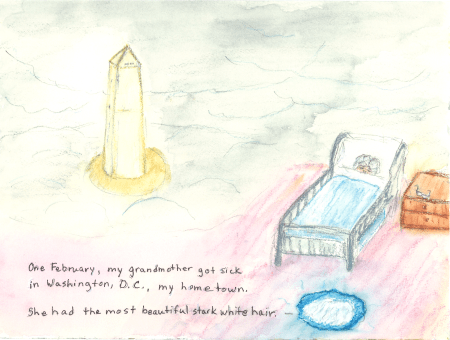 One February, my grandmother got sick
in Washington, D.C., my hometown.
She had the most beautiful stark white hair. —